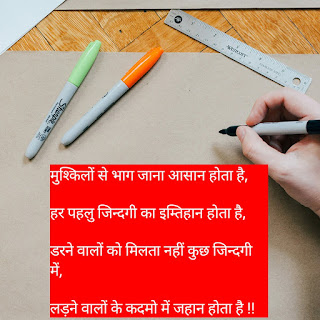 मुश्किलों से भाग जाना आसान होता है,
हर पहलु जिन्दगी का इम्तिहान होता है,
डरने वालों को मिलता नहीं कुछ जिन्दगी
में,
लड़ने वालों के कदमो में जहान होता है !!
Sharpie